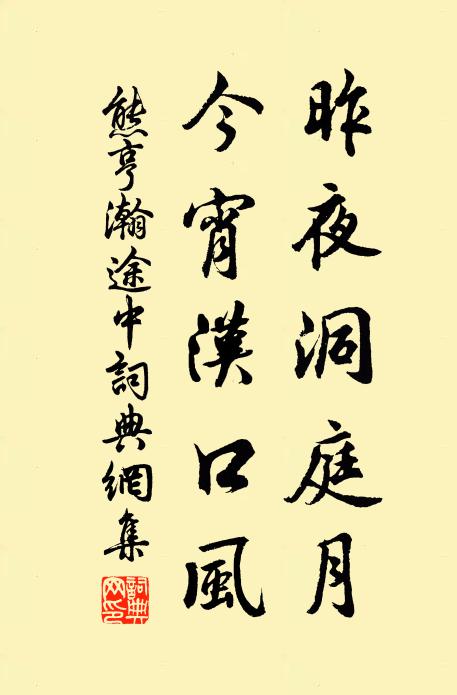 昨夜洞庭月
今宵漢口風
熊亨瀚途中詞典網集
詞典
网印